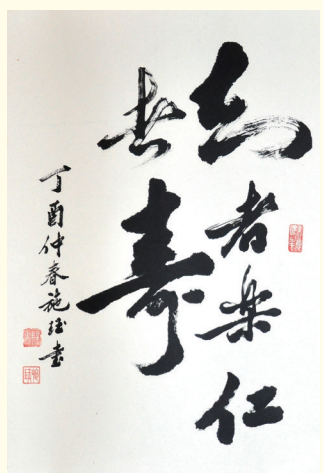 知者楽仁
者寿
丁酉仲春施書